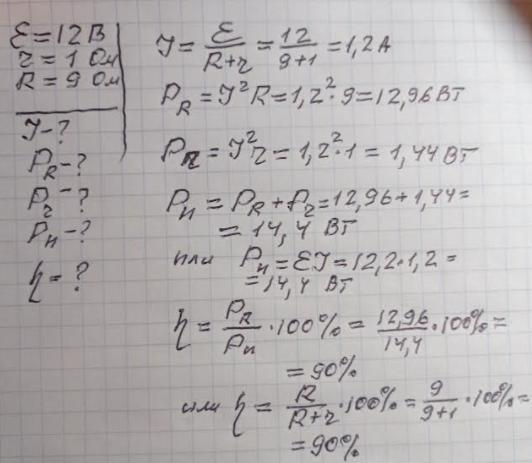 Ɛ = 12 В
r = 1 Ом
R = 9 Ом
J - ?
P_R - ?
P_r - ?
P_п - ?
η = ?
J = Ɛ/(R+r) = 12/(9+1) = 1,2 А
P_R = J²R = 1,2² · 9 = 12,96 Вт
P_r = J²r = 1,2² · 1 = 1,44 Вт
P_п = P_R + P_r = 12,96 + 1,44 =
= 14,4 Вт
или P_п = ƐJ = 12,2 · 1,2 =
= 14,4 Вт
η = P_R/P_п · 100% = 12,96/14,4 · 100% =
= 90%
или η = R/(R+r) · 100% = 9/(9+1) · 100% =
= 90%